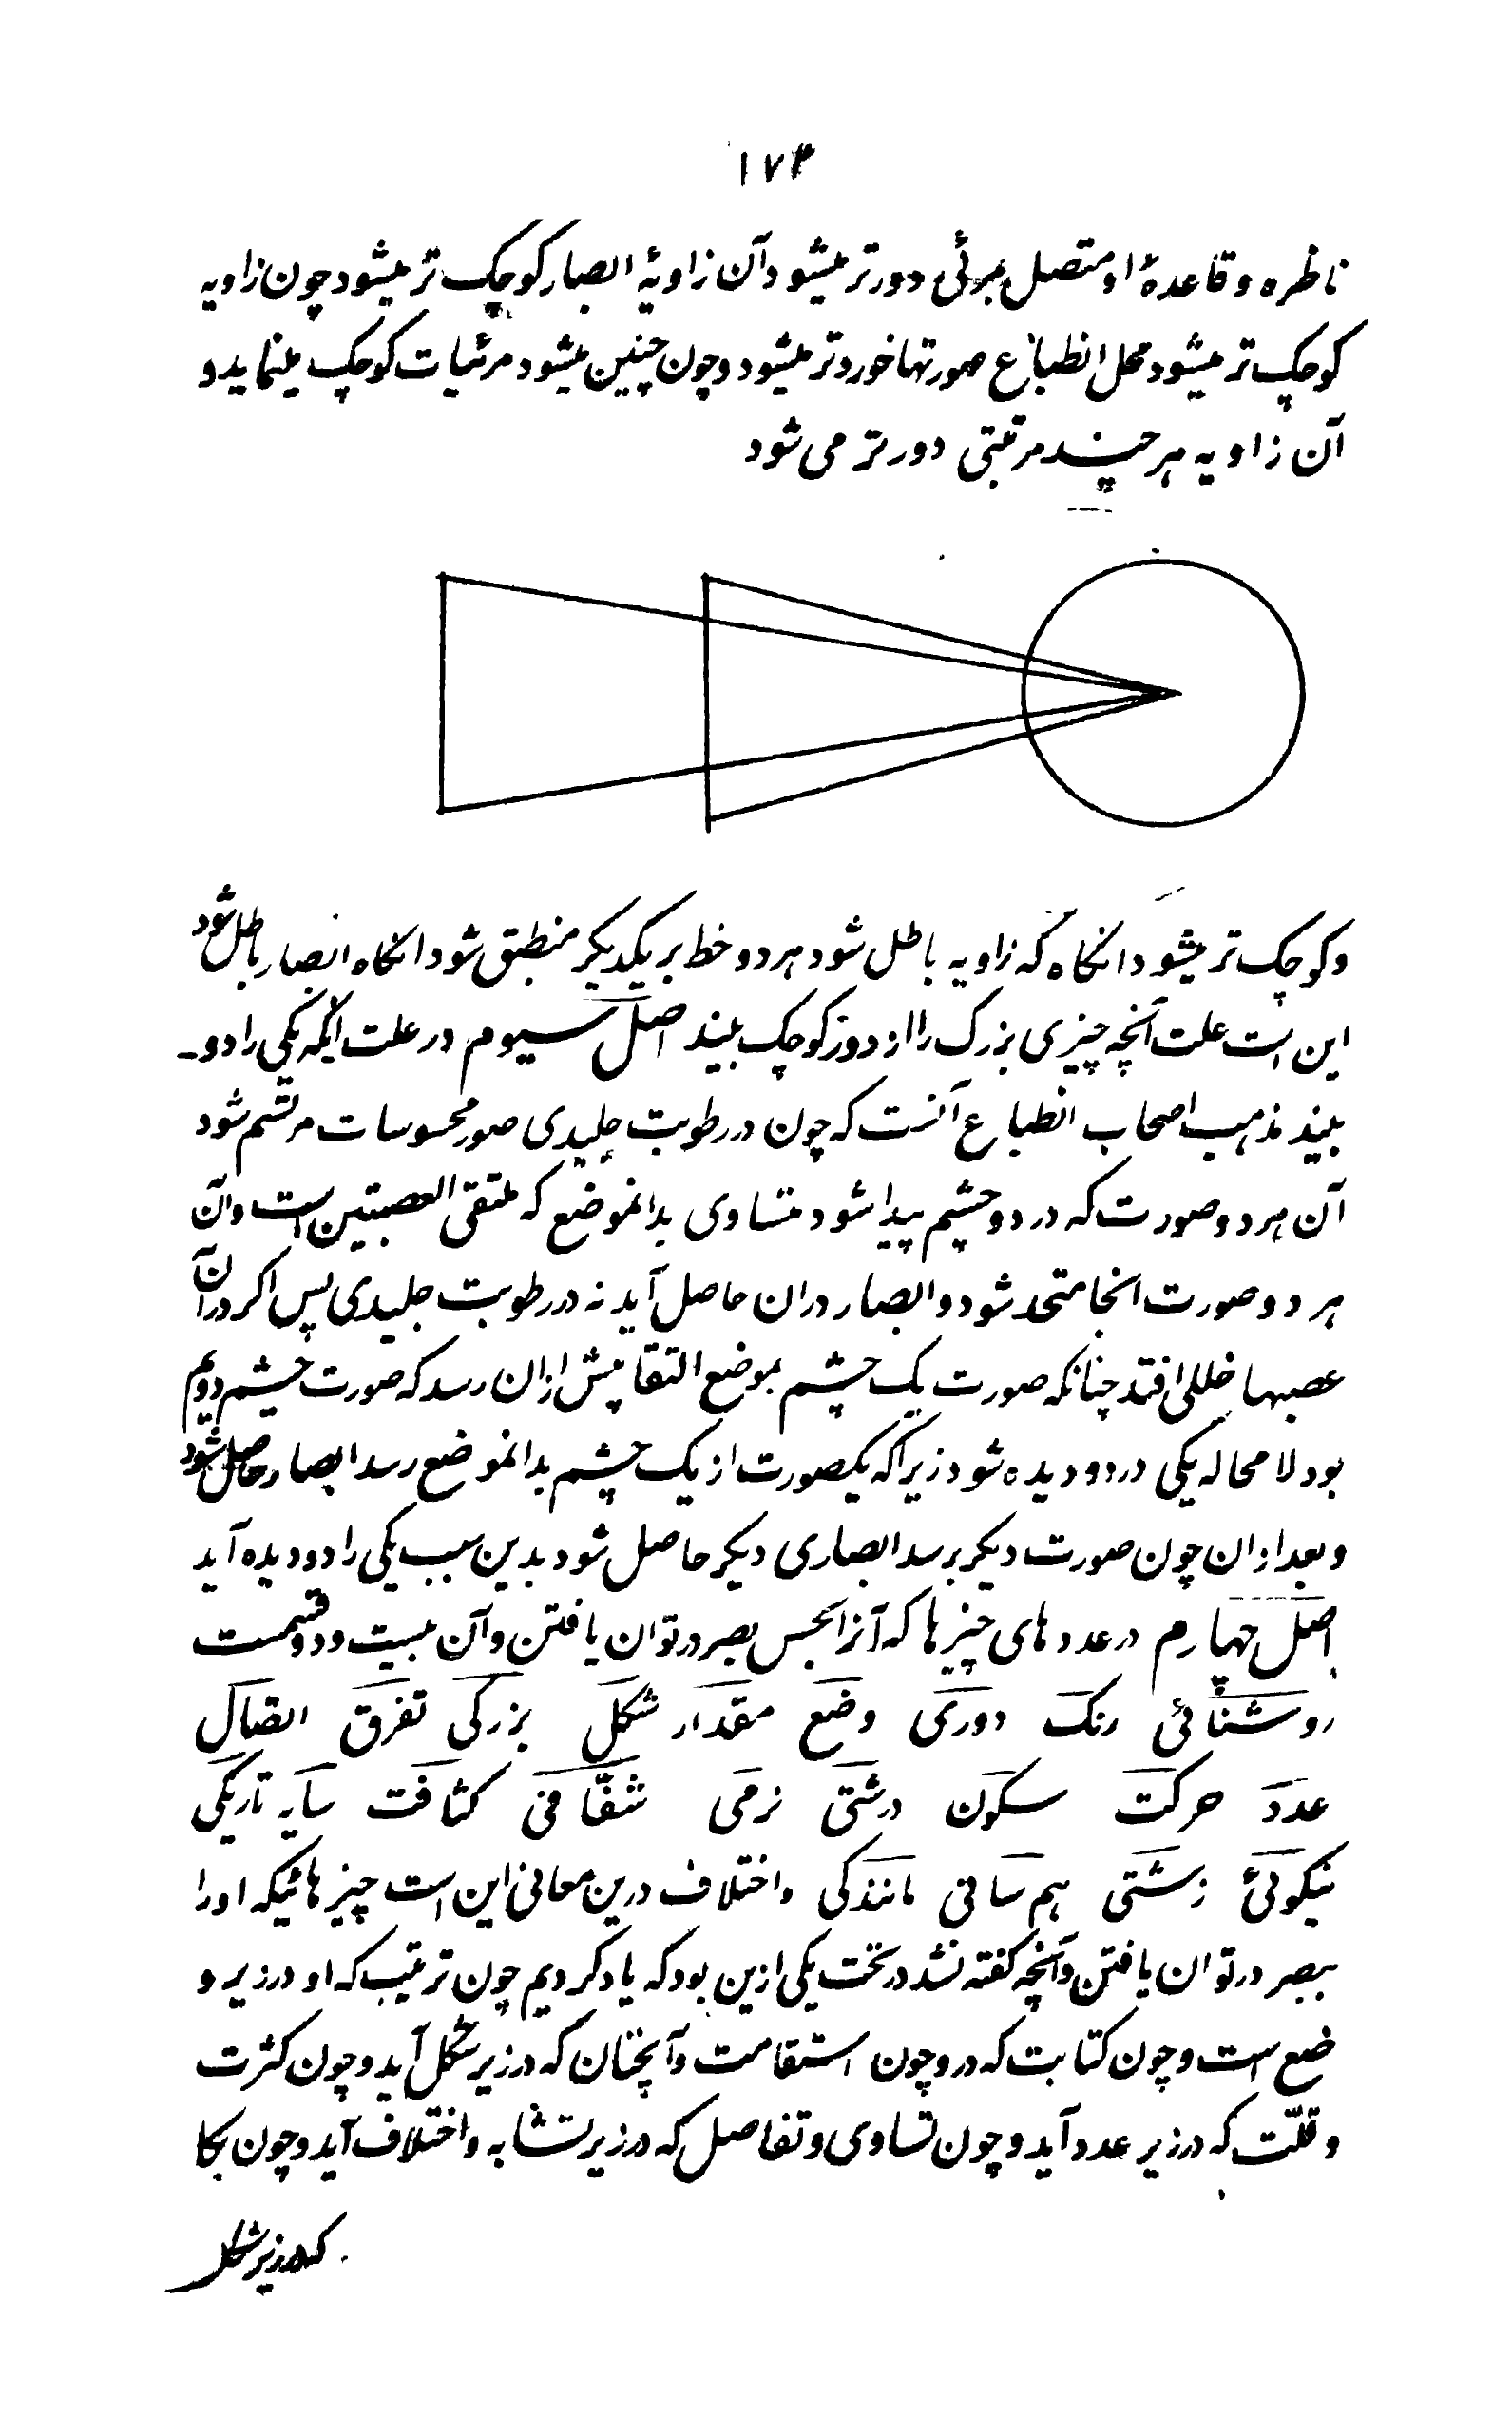 ۱۷۴
ناظره و قاعدهٔ او متصل بمرئی دورتر میشود آن زاویهٔ ابصار کوچک تر میشود چون زاویه
کوچک تر میشود محل انطباع صورتها خوردتر میشود و چون چنین میشود مرئیات کوچک مینماید و
آن زاویه هر چند مرتبتی دورتر می شود
و کوچک تر میشود انکاه که زاویه باطل شود هر دو خط بر یکدیکر منطبق شود انکاه ابصار باطل شود
این است علت آنچه چیزی بزرک را از دور کوچک بیند اصل سیوم در علت آنکه یکی را دو
بیند مذهب اصحاب انطباع آنست که چون در رطوبت جلیدی صور محسوسات مرتسم شود
آن هر دو صورت که در دو چشم پیدا شود متساوی بدانموضع که ملتقی العصبتین است و آن
هر دو صورت انجا متحد شود و ابصار دران حاصل آید نه در رطوبت جلیدی پس اکر در آن
عصبها خللی افتد چنانکه صورت یک چشم بموضع التقا پیش ازان رسد که صورت چشم دویم
بود لا محاله یکی در دو دیده شود زیرا که یکصورت از یک چشم بدانموضع رسد ابصار حاصل شود
و بعد ازان چون صورت دیکر برسد ابصاری دیکر حاصل شود بدین سبب یکی را دو دیده آید
اصل چهارم در عددهای چیزها که آنرا بحس بصر در توان یافتن و آن بیست و دو قسمت
روشنائی رنک دوری وضع مقدار شکل بزرکی تفرق اتصال
عدد حرکت سکون درشتی نرمی شفافی کثافت سایه تاریکی
نیکوئی زشتی هم سانی مانندکی و اختلاف درین معانی این است چیزهائیکه او را
ببصر در توان یافتن و آنچه کفته نشد در تحت یکی ازین بود که یاد کردیم چون ترتیب که او در زیر و
ضع است و چون کتابت که در و چون استقامت و آنچنان که در زیر شکل آید و چون کثرت
و قلت که در زیر عدد آید و چون تساوی و تفاضل که در زیر تشابه و اختلاف آید و چون بکا
که در زیر شکل